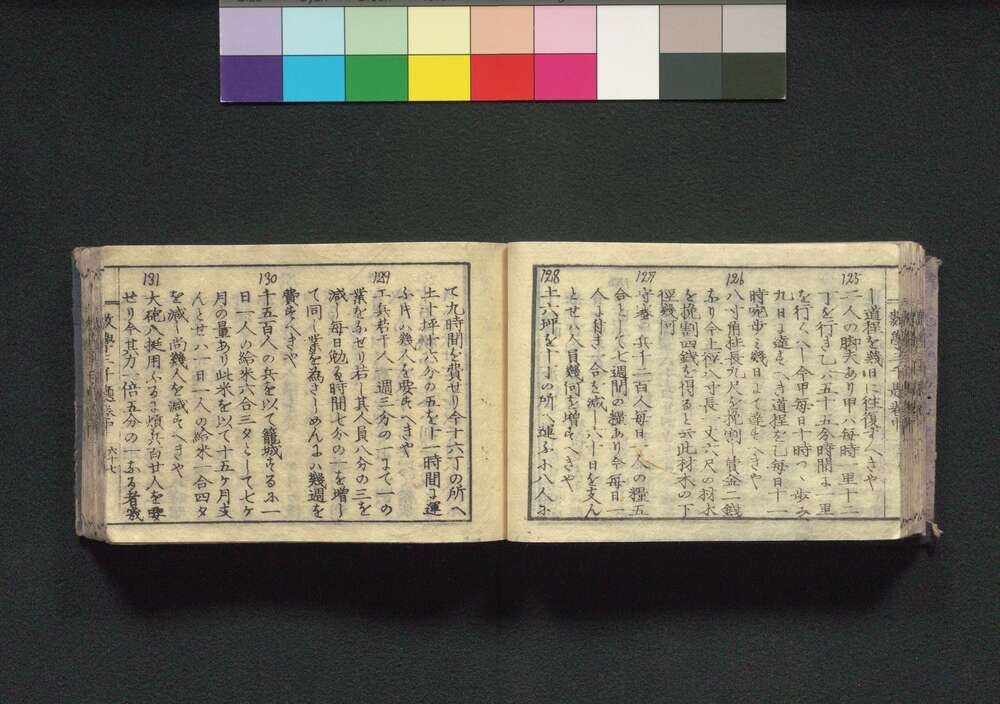 し道程を幾日に往復すへきや
125
二人の脚夫あり甲ハ毎時一里十二
丁を行き乙ハ五十五分時間に一里
を行くへし今甲毎日十時つゝ歩み
九日に達すへき道程を乙毎日十一
時宛歩ミ幾日にて達すへきや
126
八寸角柱長九尺を挽割賃金二銭
なり今上径八寸長一丈六尺の材木
を挽割四銭を得ると云此材木の下
径幾何
127
守塞の兵千二百人毎日一人の糧五
合として七週間の糧あり今毎日一
人に付き一合を減し八十日を支ん
とせハ人員幾何を増すへきや
128
土六坪を十丁の所へ運ふに八人に
て九時間を費せり今十六丁の所へ
土二十坪十六分の五を十一時間に運
ふにハ幾人を要すへきや
129
工兵若干人一週三分の一にて一の
業をなせり若し其人員八分の三を
減し毎日勉る時間七分の一を増し
て同し業を為さしめんにハ幾週を
費すへきや
130
千五百人の兵を以て籠城するに一
日一人の給米六合三タにして七ヶ
月の量あり此米を以て十五ヶ月支
んとせハ一日一人の給米一合四タ
を減し尚幾人を減すへきや
131
大砲八挺用ふるに煩兵百廿人を要
せり今其力一倍五分の一なる者幾
数學三千題巻中
六十七